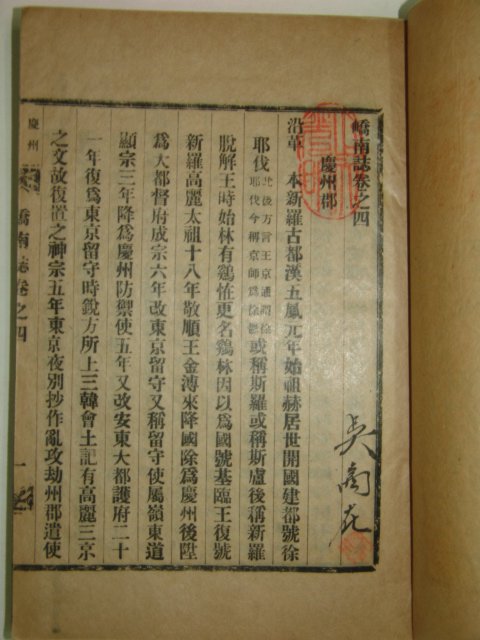 嶠南誌卷之四
慶州郡
沿革 本新羅古都漢五鳳元年始祖赫居世開國建都號徐
耶伐 此後方言王京通謂徐耶伐今稱京師爲徐 或稱斯羅或稱斯盧後稱新羅
脫解王時始林有鷄恠更名鷄林因以爲國號基臨王復號
新羅高麗太祖十八年敬順王金溥來降國除爲慶州後陞
爲大都督府成宗六年改東京留守又稱留守使屬嶺東道
顯宗三年降爲慶州防禦使五年又改安東大都護府二十
一年復爲東京留守時銳方所上三韓會土記有高麗三京
之文故復置之神宗五年東京夜別抄作亂攻劫州郡遣使
慶州
嶠南誌卷之四
一